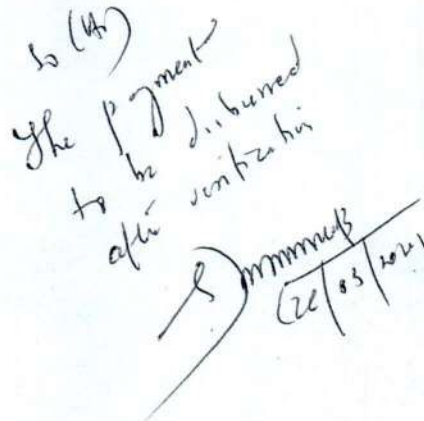 So (Ar)
The payment
to be disbursed
after verification
/03/202